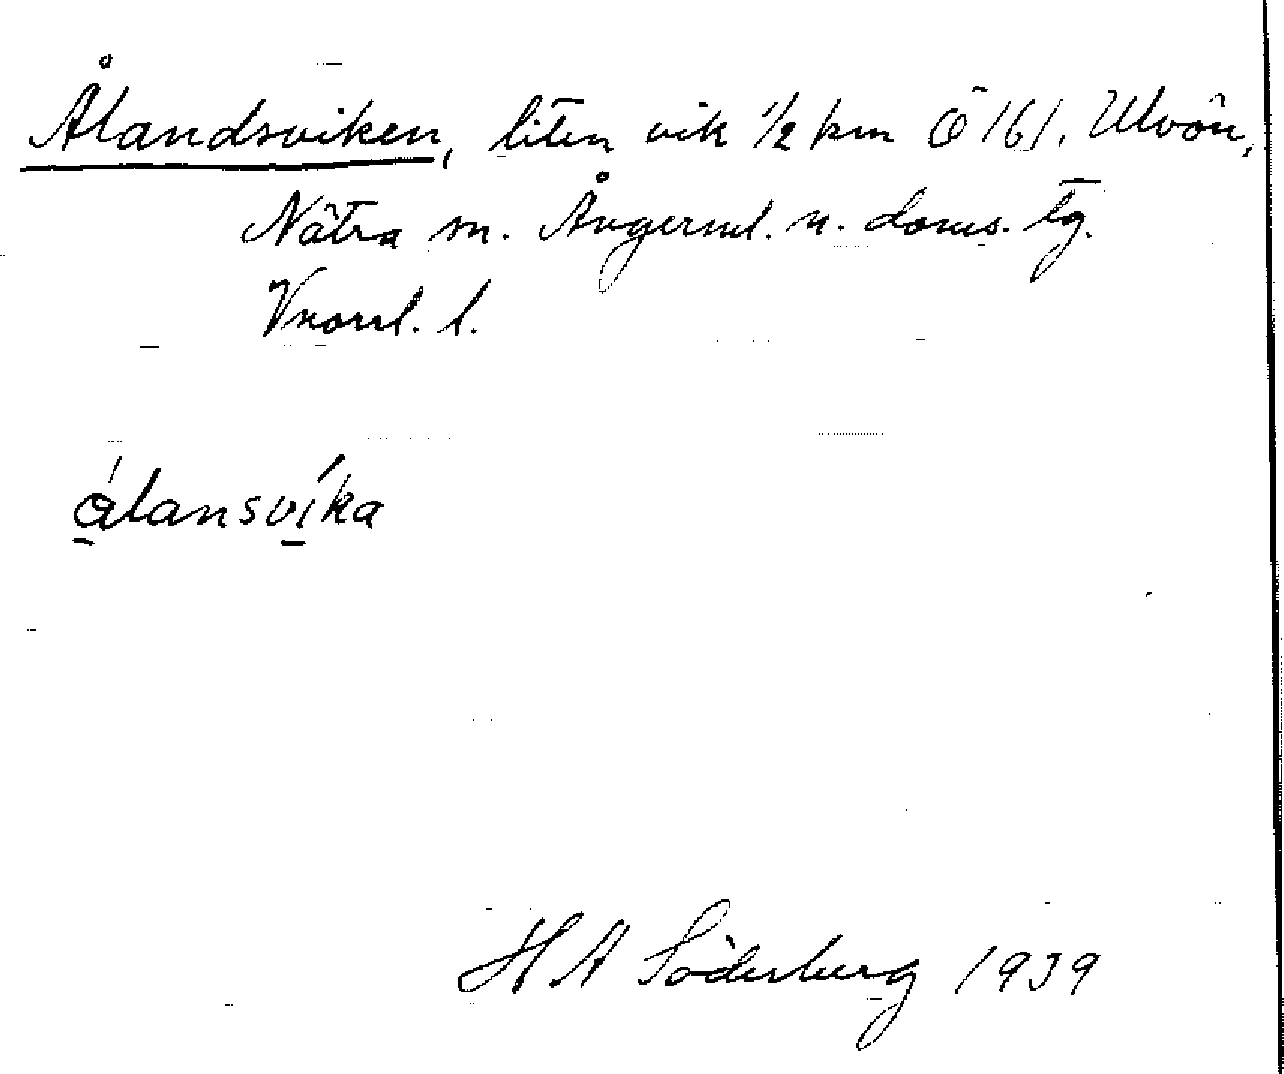 Ålandsviken, liten vik 1/2 km Ö 161. Ulvön,
Nätra sn. Ångerml. n. doms. tg.
Vnorrl. l.
ålansvíka
H A Söderberg 1939